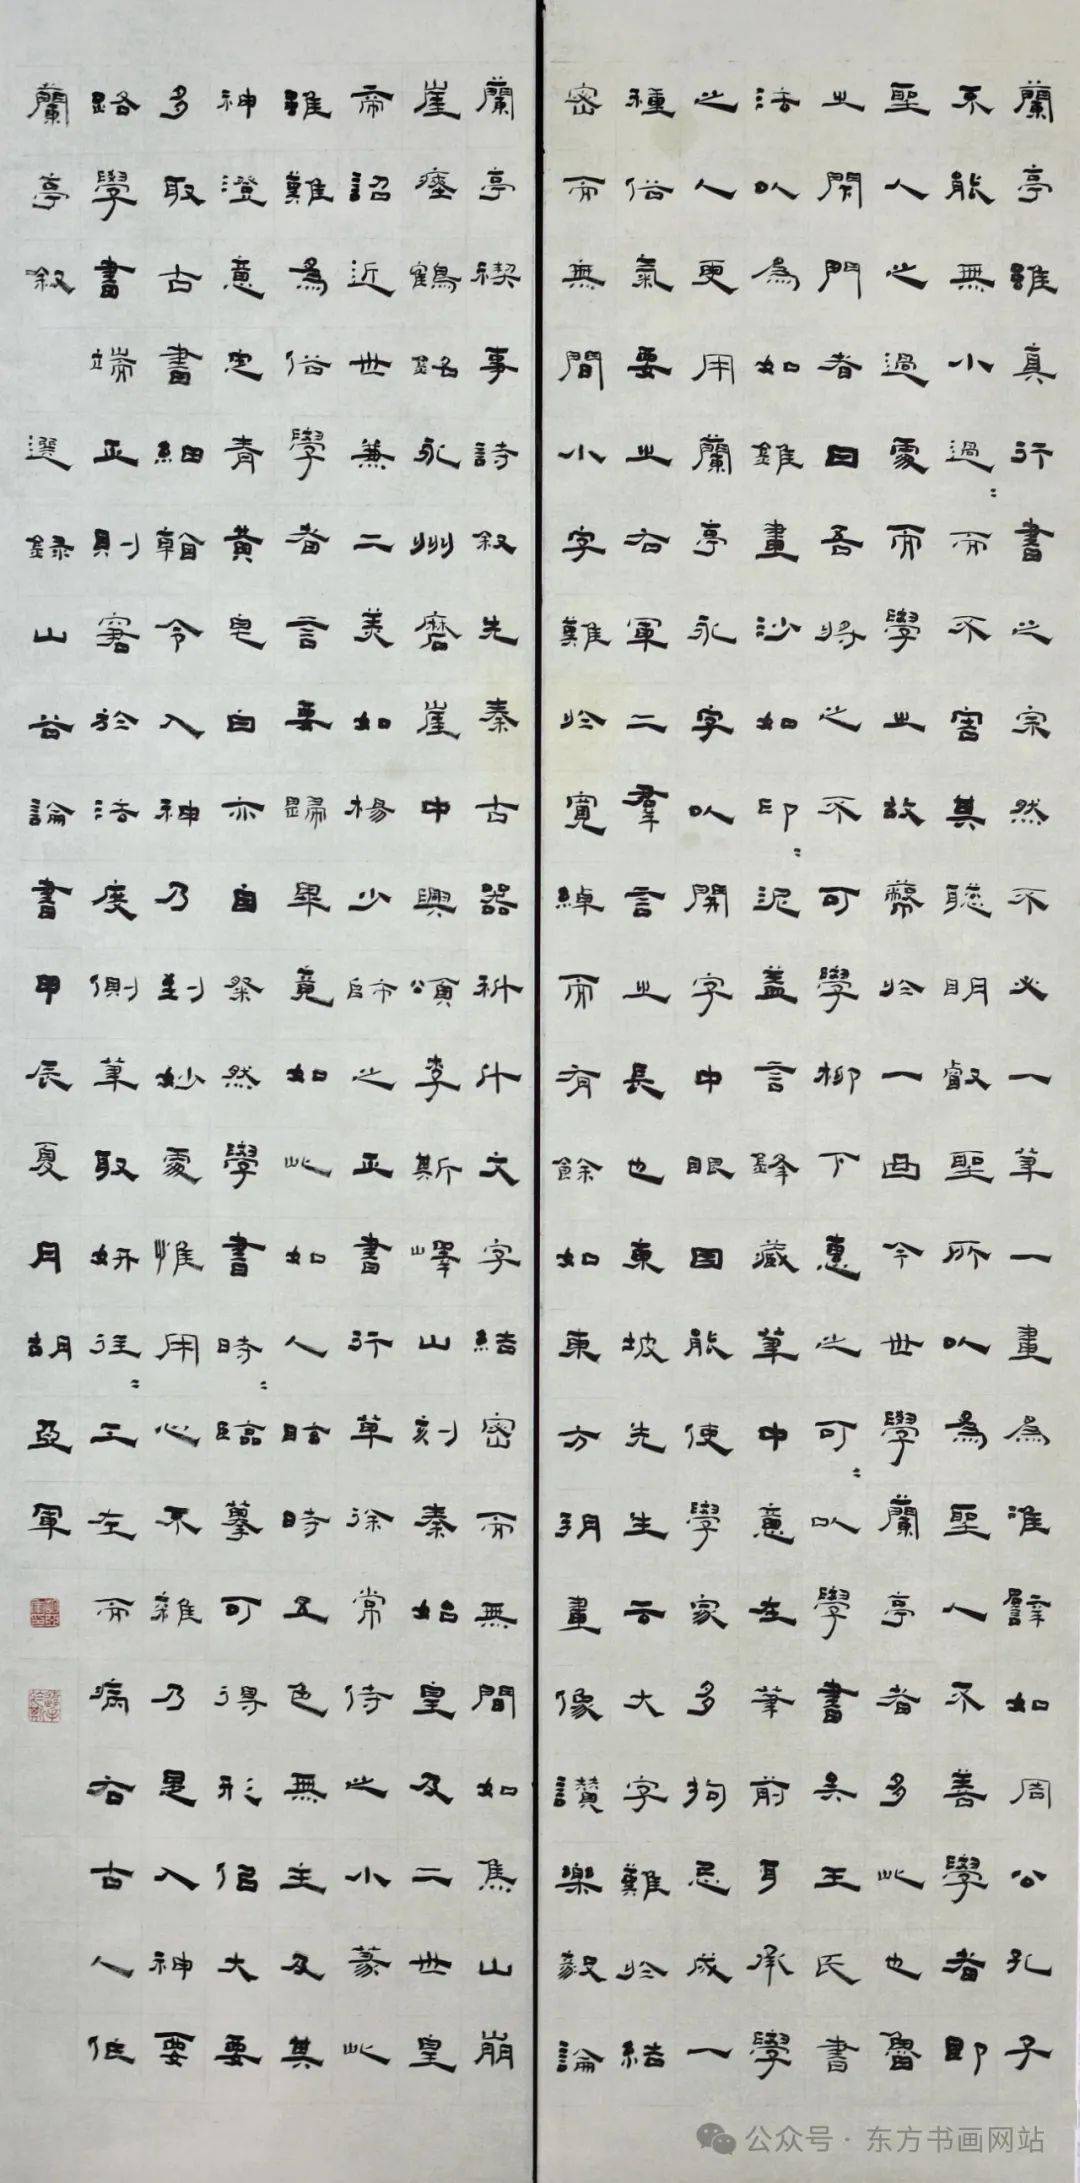 蘭亭雖真行書之宗然不必一筆一畫為準譬如周公孔子
不能無小過=而不害其聰明睿聖所以為聖人不善學者即
聖人之過處而學之故蔽於一曲今世學蘭亭者多此也魯
之閉門者曰吾將之不可學柳下惠之可=以學書矣王氏書
法以為如錐畫沙如印=泥蓋言鋒藏筆中意在筆前耳承學
之人更用蘭亭永字以開字中眼目能使學家多拘忌成一
種俗氣要之右軍二羣言之長也東坡先生云大字難於結
密而無間小字難於寬綽而有餘如東方朔畫像讚樂毅論
蘭亭禊事詩叙先秦古器科斗文字結密而無間如焦山崩
崖瘞鶴銘永州磨崖中興頌李斯嶧山刻秦始皇及二世皇
帝詔近世兼二美如楊少師之正書行草徐常侍之小篆此
雖難為俗學者言要歸畢竟如此如人眩時五色無主及其
神澄意定青黃皂白亦自粲然學書時=臨摹可得形侣大要
多取古書細看令入神乃到妙處惟用心不雜乃是入神要
路學書端正則窘於法度側筆取妍往=工左而病右古人作
蘭亭叙 選錄山谷論書甲辰夏月胡亞軍
公众号·东方书画网站